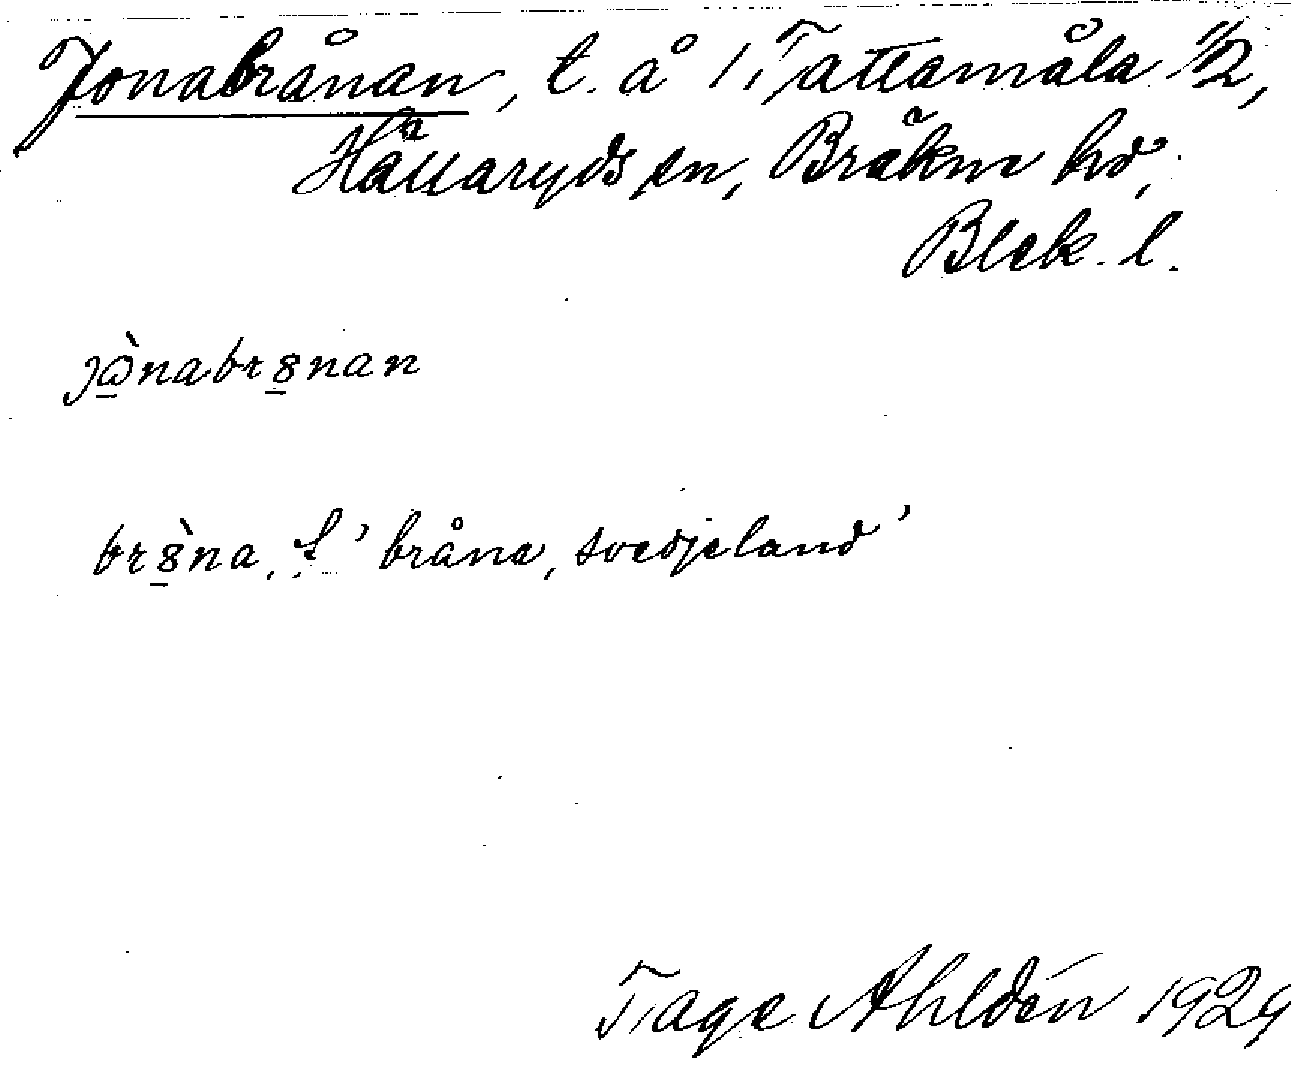 Jonabrånan, t. å 1, Tattamåla 1/2,
Hällaryds sn, Bräkne hd,
Blek. l.
jὼ̲nabr8̲nan
br8̲̀na, f. 'bråna, svedjeland'
Tage Ahldén 1929